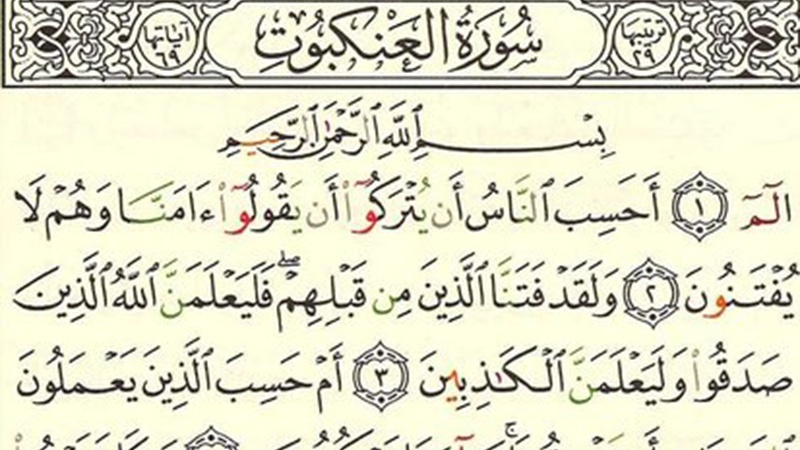 ترتيبها ٢٩
سُورَةُ العَنكَبُوتِ
آياتها ٦٩
بِسْمِ ٱللَّهِ ٱلرَّحْمَٰنِ ٱلرَّحِيمِ
الٓمٓ ١ أَحَسِبَ ٱلنَّاسُ أَن يُتْرَكُوٓا۟ أَن يَقُولُوٓا۟ ءَامَنَّا وَهُمْ لَا
يُفْتَنُونَ ٢ وَلَقَدْ فَتَنَّا ٱلَّذِينَ مِن قَبْلِهِمْ ۖ فَلَيَعْلَمَنَّ ٱللَّهُ ٱلَّذِينَ
صَدَقُوا۟ وَلَيَعْلَمَنَّ ٱلْكَـٰذِبِينَ ٣ أَمْ حَسِبَ ٱلَّذِينَ يَعْمَلُونَ